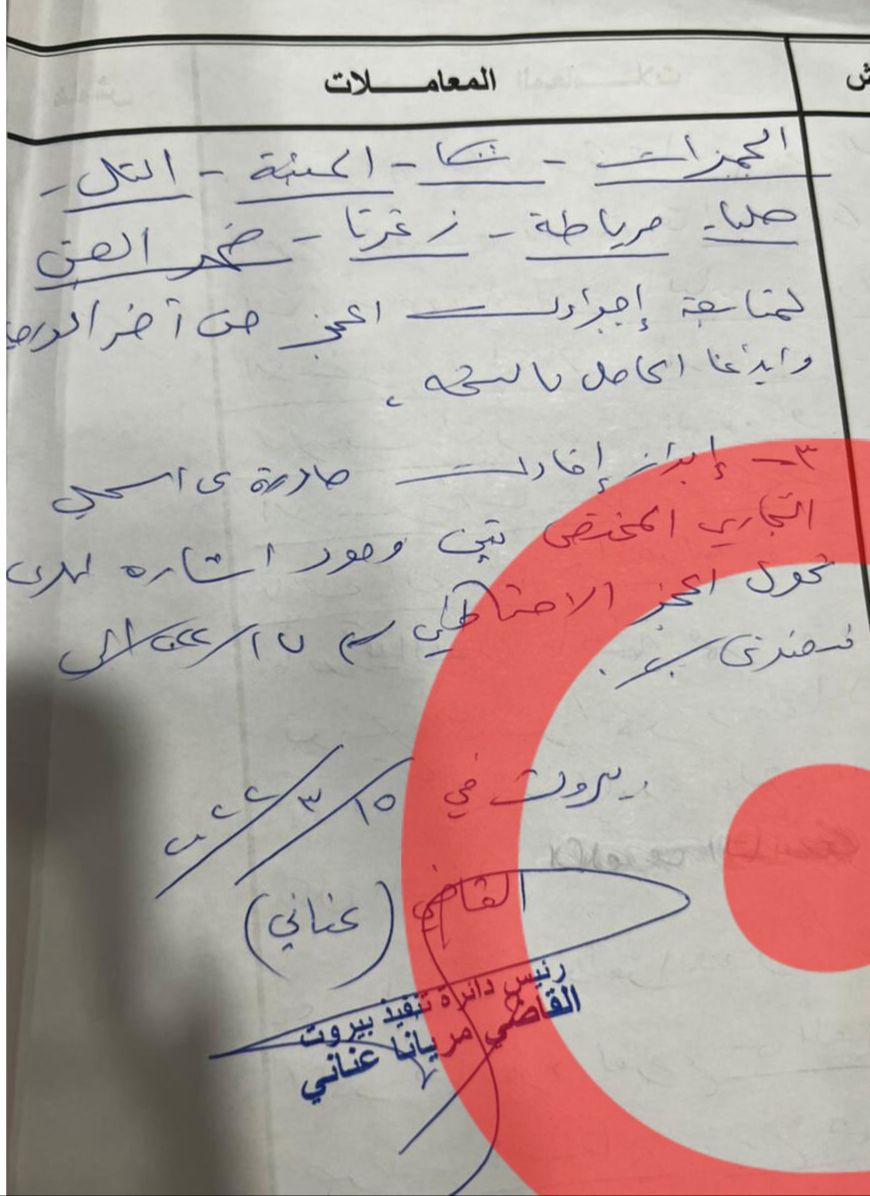 المعامـــلات
الجميزات - شكا - - التل -
حلبا - مرياطة - زغرتا - ضهر العين
لمتابعة إجراءات الحجز من آخر
وإيداعنا الحاصل بالنتيجة .
٣ - إبراز إفادات صادرة عن السجل
التجاري المختص تبين وجود اشارة لهذه
تحول الحجز الاحتياطي رقم ١٧ الى
تنفيذي
بيروت في ١٥ / ٣ / ٢٠٢٢
القاضي (عناني)
رئيس دائرة تنفيذ بيروت
القاضي مريانا عناني